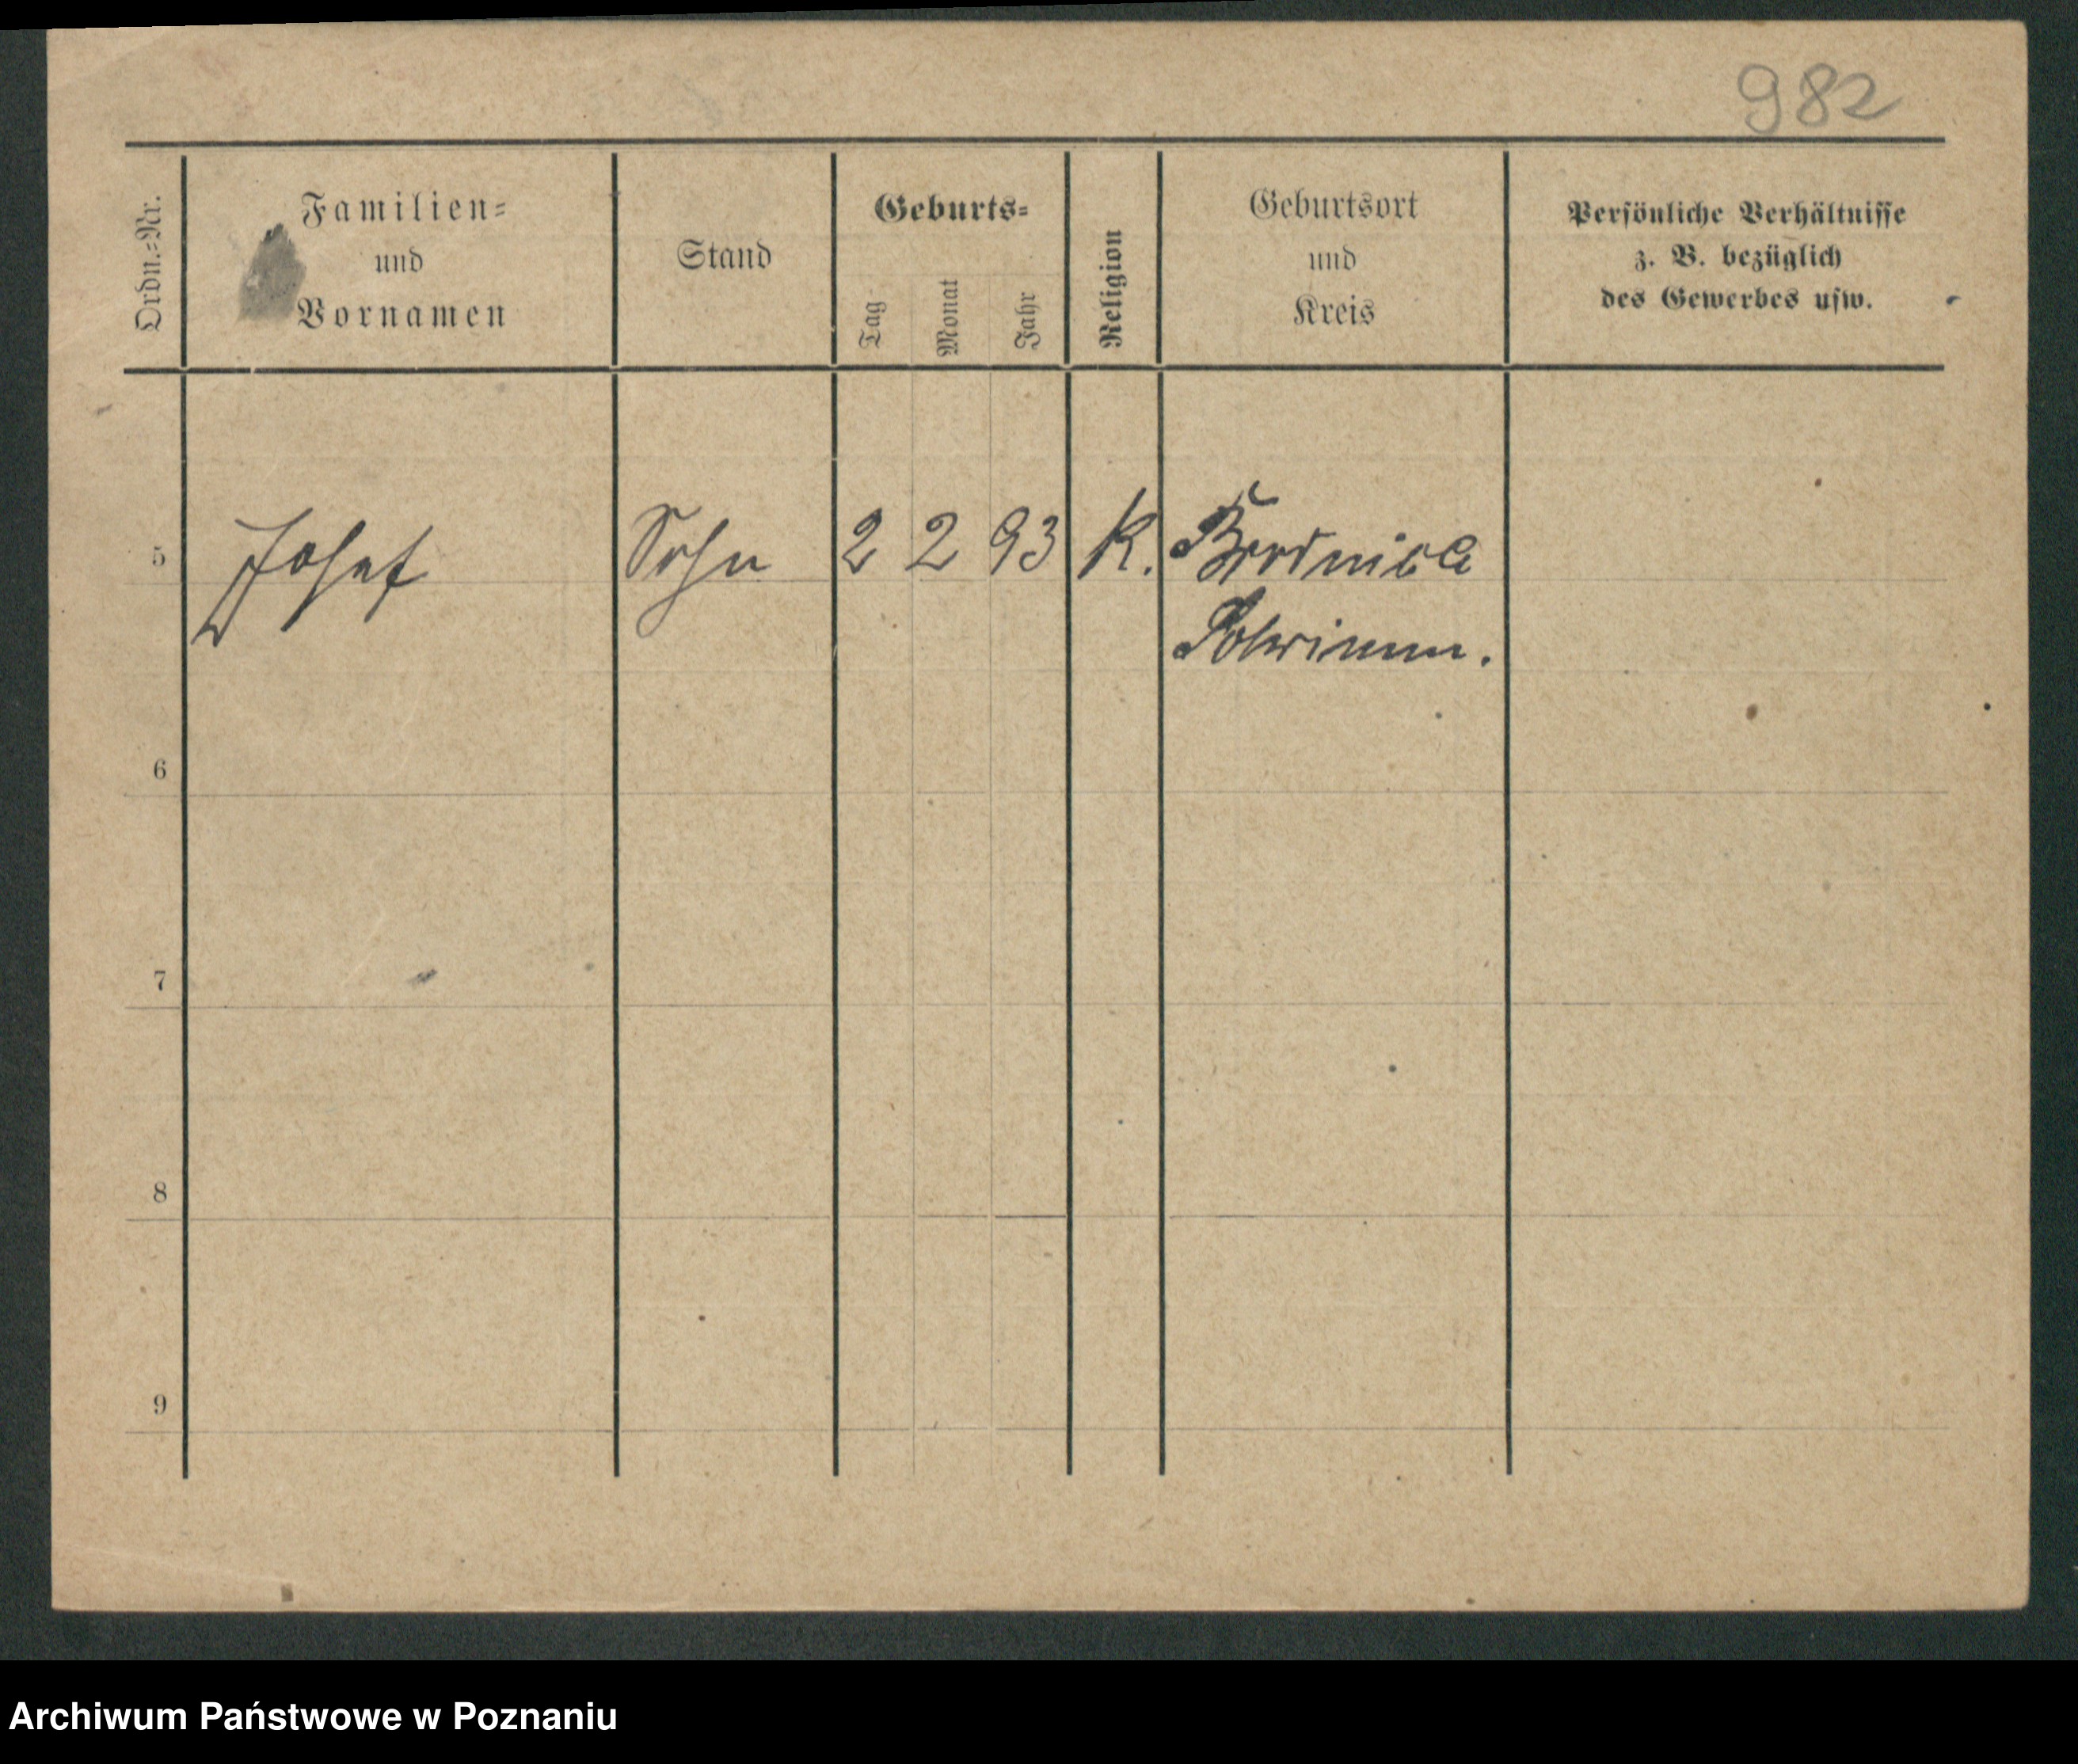 982
Ordn.=Nr.
Familien=
und
Vornamen
Stand
Geburts=
Tag
Monat
Jahr
Religion
Geburtsort
und
Kreis
Persönliche Verhältnisse
z. B. bezüglich
des Gewerbes usw.
5 Josef Sohn 2 2 93 K.
6
7
8
9
Archiwum Państwowe w Poznaniu